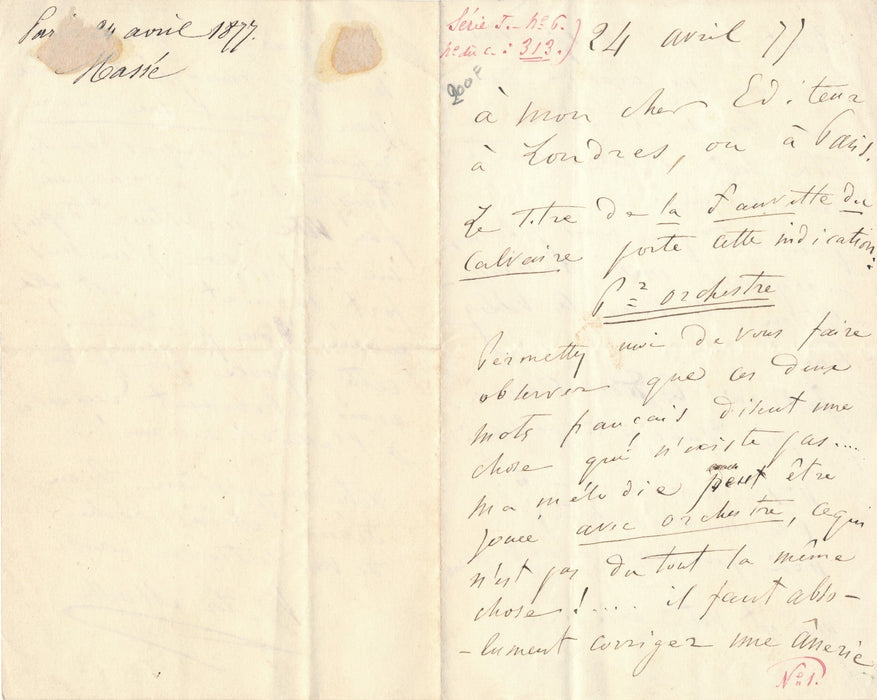 Paris 24 avril 1877.
Massé
Série J. - No 6.
No du c. : 313.
200 F
24 avril 77
à mon cher Editeur
à Londres, ou à Paris.
Le titre de la Fauvette du
Calvaire porte cette indication:
Pr orchestre
Permettez moi de vous faire
observer que ces deux
mots français disent une
chose qui n'existe pas....
ma mélodie peut être
jouée avec orchestre, ce qui
n'est pas du tout la même
chose!.... il faut abso-
-lument corriger une ânerie
No 1.